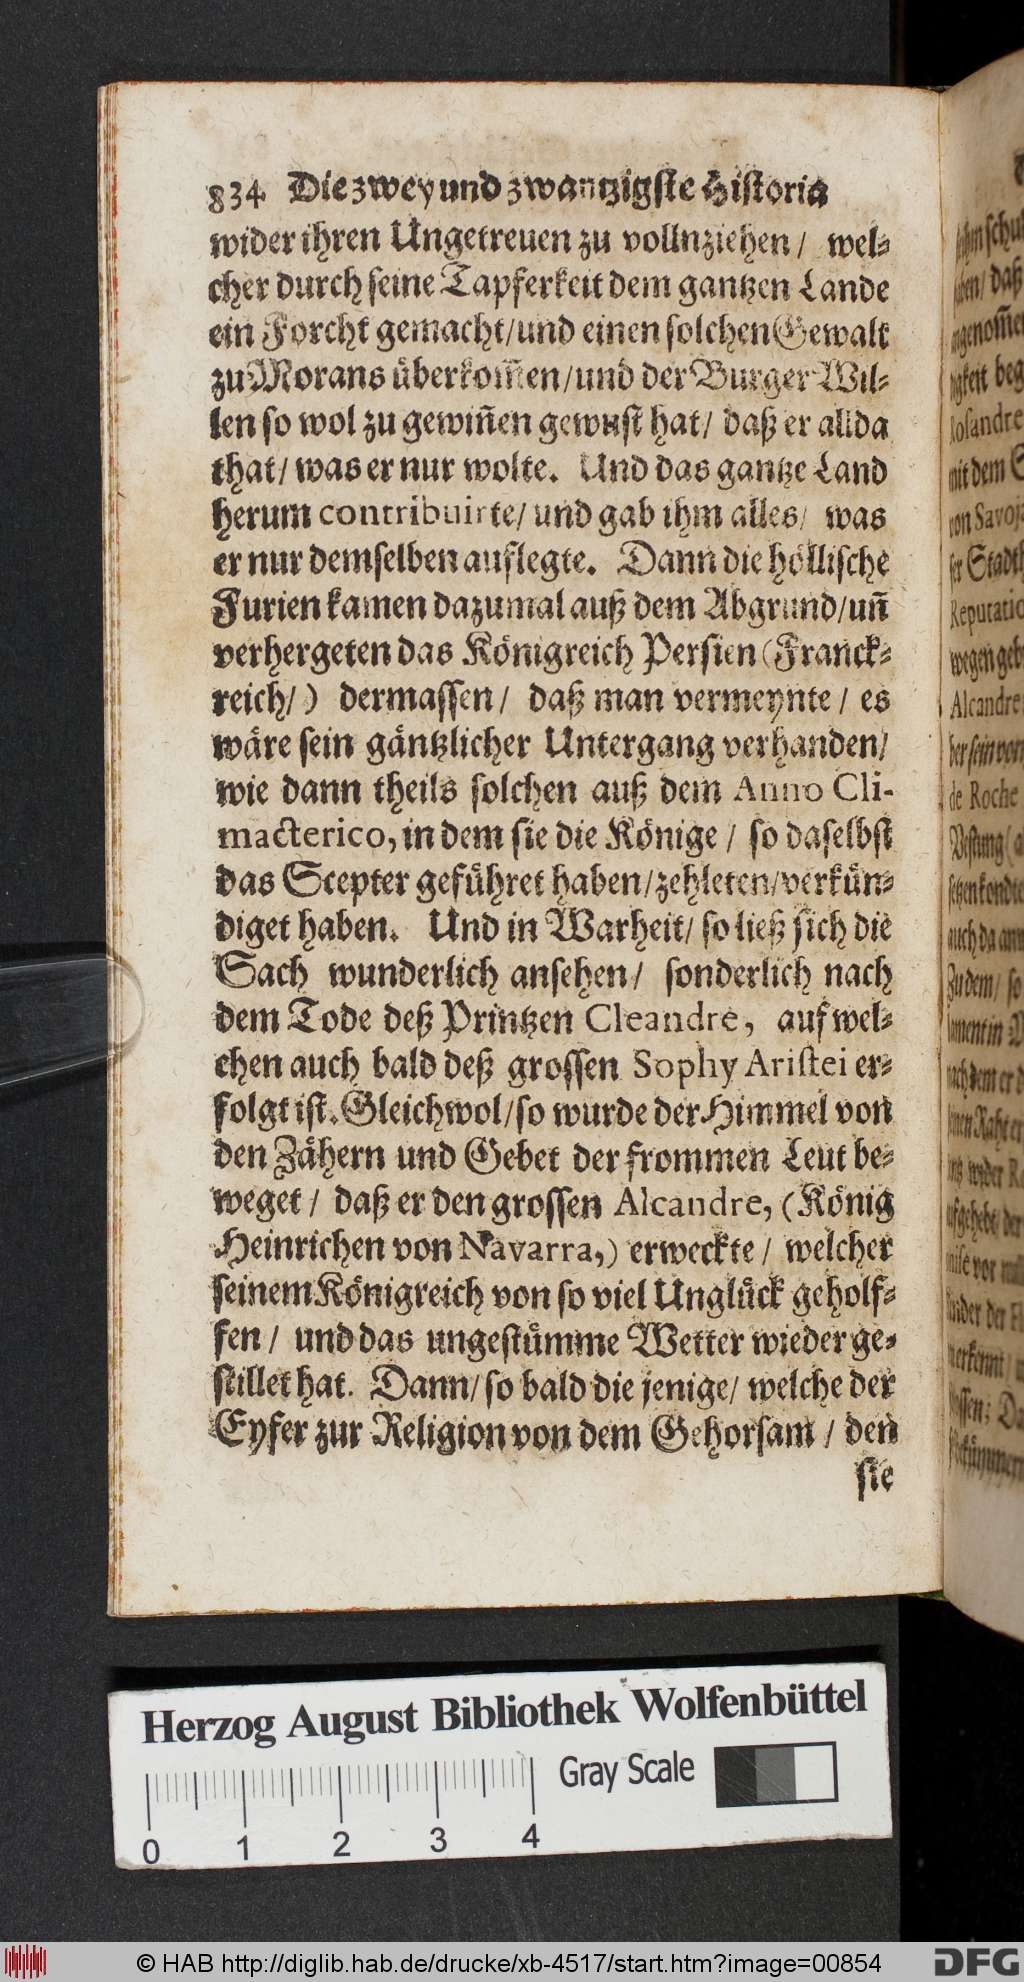 834 Die zwey und zwantzigste Historia
wider ihren Ungetreuen zu vollnziehen / wel-
cher durch seine Tapferkeit dem gantzen Lande
ein Forcht gemacht/und einen solchen Gewalt
zu Morans überkom̃en/und der Burger Wil-
len so wol zu gewiñen gewust hat/ daß er allda
that/ was er nur wolte. Und das gantze Land
herum contribuirte/ und gab ihm alles/ was
er nur demselben auflegte. Dann die höllische
Furien kamen dazumal auß dem Abgrund/uñ
verhergeten das Königreich Persien (Franck-
reich/) dermassen/ daß man vermeynte / es
wäre sein gäntzlicher Untergang verhanden/
wie dann theils solchen auß dem Anno Cli-
macterico, in dem sie die Könige / so daselbst
das Scepter geführet haben/zehleten/verkün-
diget haben. Und in Warheit/ so ließ sich die
Sach wunderlich ansehen/ sonderlich nach
dem Tode deß Printzen Cleandre, auf wel-
chen auch bald deß grossen Sophy Aristei er-
folgt ist. Gleichwol/so wurde der Himmel von
den Zähern und Gebet der frommen Leut be-
weget / daß er den grossen Alcandre, (König
Heinrichen von Navarra,) erweckte / welcher
seinem Königreich von so viel Unglück geholf-
fen / und das ungestümme Wetter wieder ge-
stillet hat. Dann/ so bald die jenige/ welche der
Eyfer zur Religion von dem Gehorsam / den
sie
mit dem
von Savoj
Reputatio
Alcandre
de Roche
Herzog August Bibliothek Wolfenbüttel
Gray Scale
0 1 2 3 4
© HAB http://diglib.hab.de/drucke/xb-4517/start.htm?image=00854
DFG